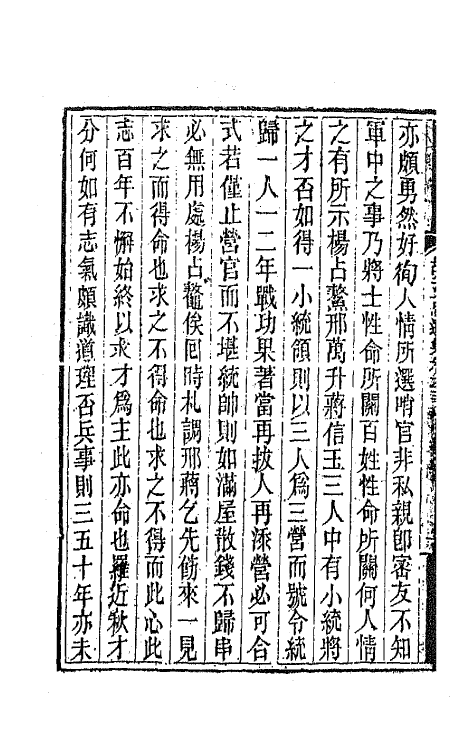 亦頗勇然好徇人情所選哨官非私親卽密友不知
軍中之事乃將士性命所關百姓性命所關何人情
之有所示楊占鰲邢萬升蔣信玉三人中有小統將
之才否如得一小統領則以三人爲三營而號令統
歸一人一二年戰功果著當再拔人再添營必可合
式若僅止營官而不堪統帥則如滿屋散錢不歸串
必無用處楊占鰲俟回時札調邢蔣乞先飭來一見
求之而得命也求之不得命也求之不得而此心此
志百年不懈始終以求才爲主此亦命也羅近秋才
分何如有志氣頗識道理否兵事則三五十年亦未